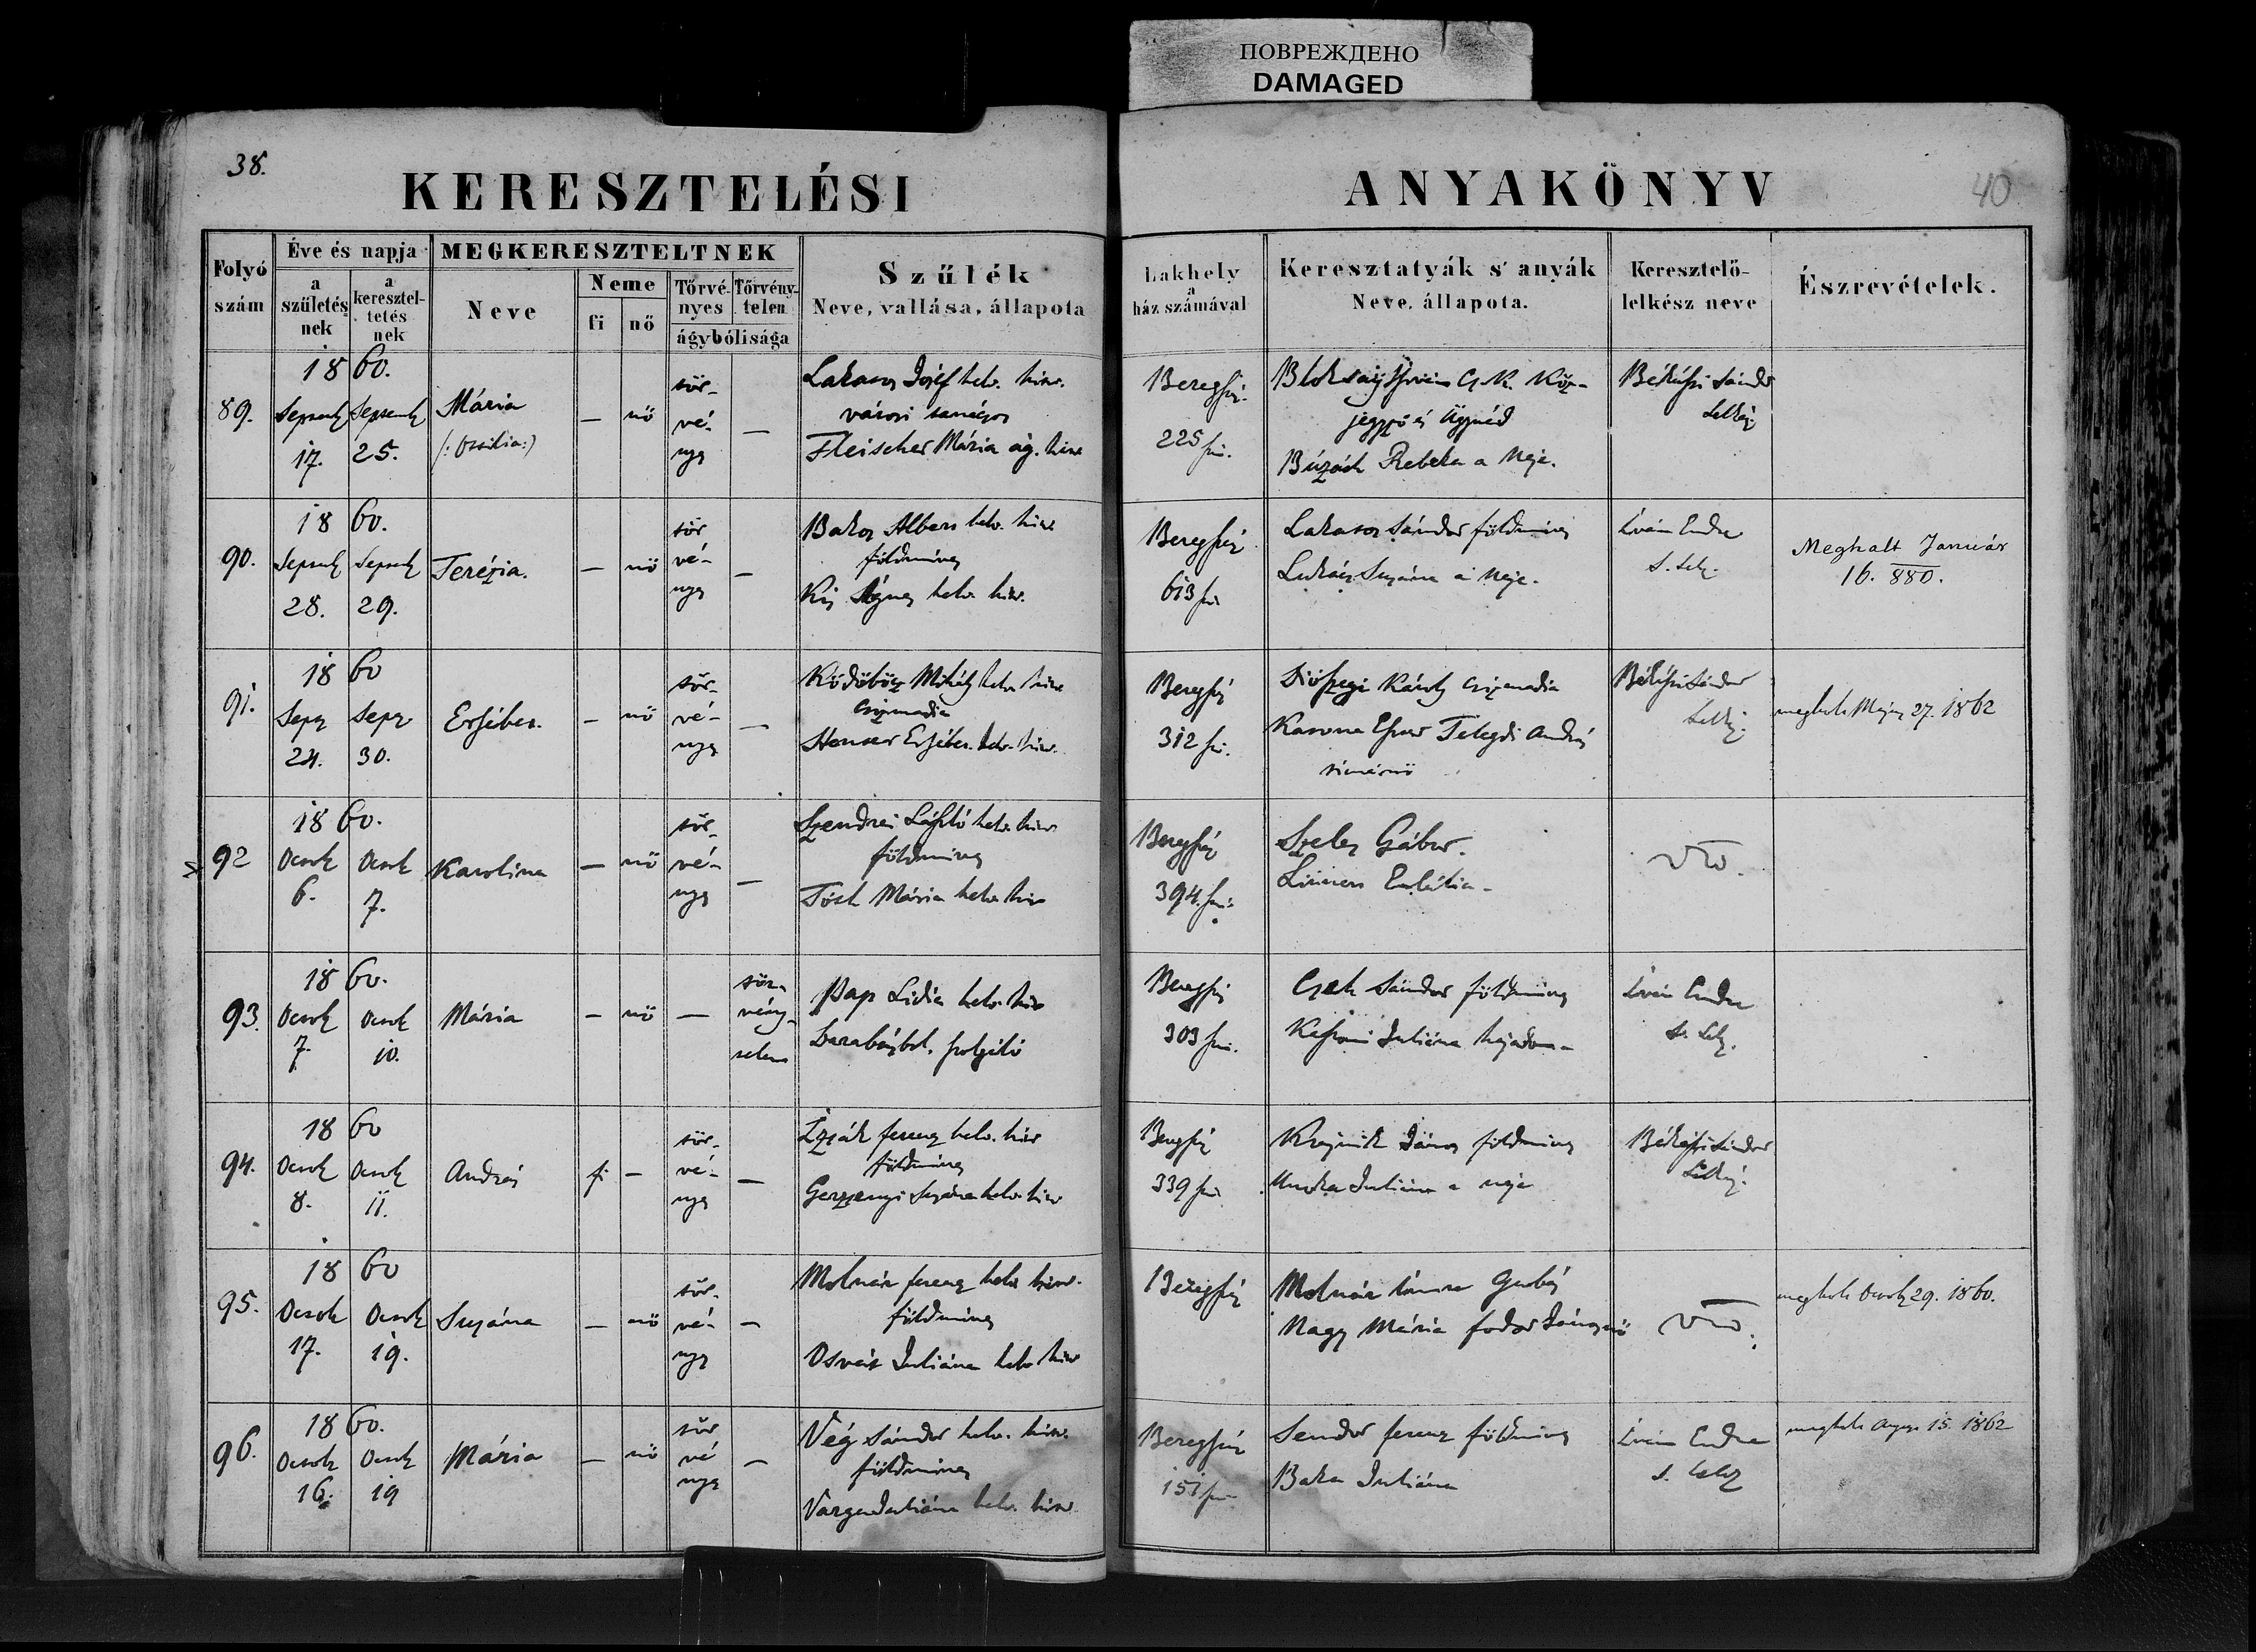 ПОВРЕЖДЕНО
DAMAGED
38.
KERESZTELÉSI
ANYAKÖNYV
40
Folyó szám
Éve és napja
a születés nek
a keresztel- tetés nek
MEGKERESZTELTNEK
Neve
Neme
fi
nő
Törvé- nyes
Törvény- telen
ágybólisága
Szűlék
Neve, vallása, állapota
Lakhely
a
ház számával
Keresztatyák s' anyák
Neve, állapota.
Keresztelő-
lelkész neve
Észrevételek.
89.
1860.
Septemb 17.
Septemb 25.
Mária
—
nő
tör-
vé-
nyes
—
Lakatos József helv. hitv.
városi
Fleischer Mária ág. hitv
Beregsz.
225 sz.
István
jegyző és Ügyvéd
Búzáth Rebeka a Neje.
Békássi Sándor
Lelkész
90.
1860.
Septemb 28.
Septemb 29.
Terézia.
—
nő
tör
vé-
nyes
—
Bakos Albert helv. hitv
földmives
Kis Ágnes helv. hitv.
Beregsz
613 sz
Lakatos Sándor földmives
Lukács Suzána a Neje.
Iván Endre
s. lelk.
Meghalt Január
16. 880.
91.
1860
Sept 24.
Sept 30.
Ersébet.
—
nő
tör-
vé-
nyes
—
Ködöböcz Mihály helv. hitv
csizmadia
Ersébet helv. hitv.
Beregsz
312 sz.
Diószegi Károly csizmadia
Katona Eszter Telegdi András
Békássi Sándor
Lelkész.
meghalt Május 27. 1862
92
1860.
Octob 6.
Octob 7.
Karolina
—
nő
tör-
vé-
nyes
—
Szendrei László helv. hitv
földmives
Tóth Mária helv. hitv
Beregsz
394. sz.
Szeles Gábor.
Eulália
93.
1860.
Octob 7.
Octob 10.
Mária
—
nő
—
tör-
vény-
telen
Pap Lidia helv. hitv
szolgáló
Beregsz
303 sz.
Sándor földmives
Kászoni Juliána hajadon
Iván Endre
s. Lelk.
94.
1860
Octob 8.
Octob 11.
András
fi
—
tör-
vé-
nyes
—
Izsák ferencz helv. hitv
földmives
Gerzsenyi Suzána helv. hitv
Beregsz
339 sz.
Krajnik János földmives
Juliána a neje
Békássi Sándor
Lelkész.
95.
1860
Octob 17.
Octob 19.
Suzána
—
nő
tör-
vé-
nyes
—
Molnár ferencz helv. hitv.
földmives
Osvát Juliána helv hitv
Beregsz
Molnár
Nagy Mária fodor Jánosnő
meghalt Octob 29. 1860.
96.
1860.
Octob 16.
Octob 19
Mária
—
nő
tör
vé
nyes
—
Vég Sándor helv. hitv.
földmives
Varga Juliána helv. hitv.
Beregsz
151 sz
Sándor ferencz földmives
Baka Juliána
Iván Endre
s. lelk
meghalt Aug. 15. 1862